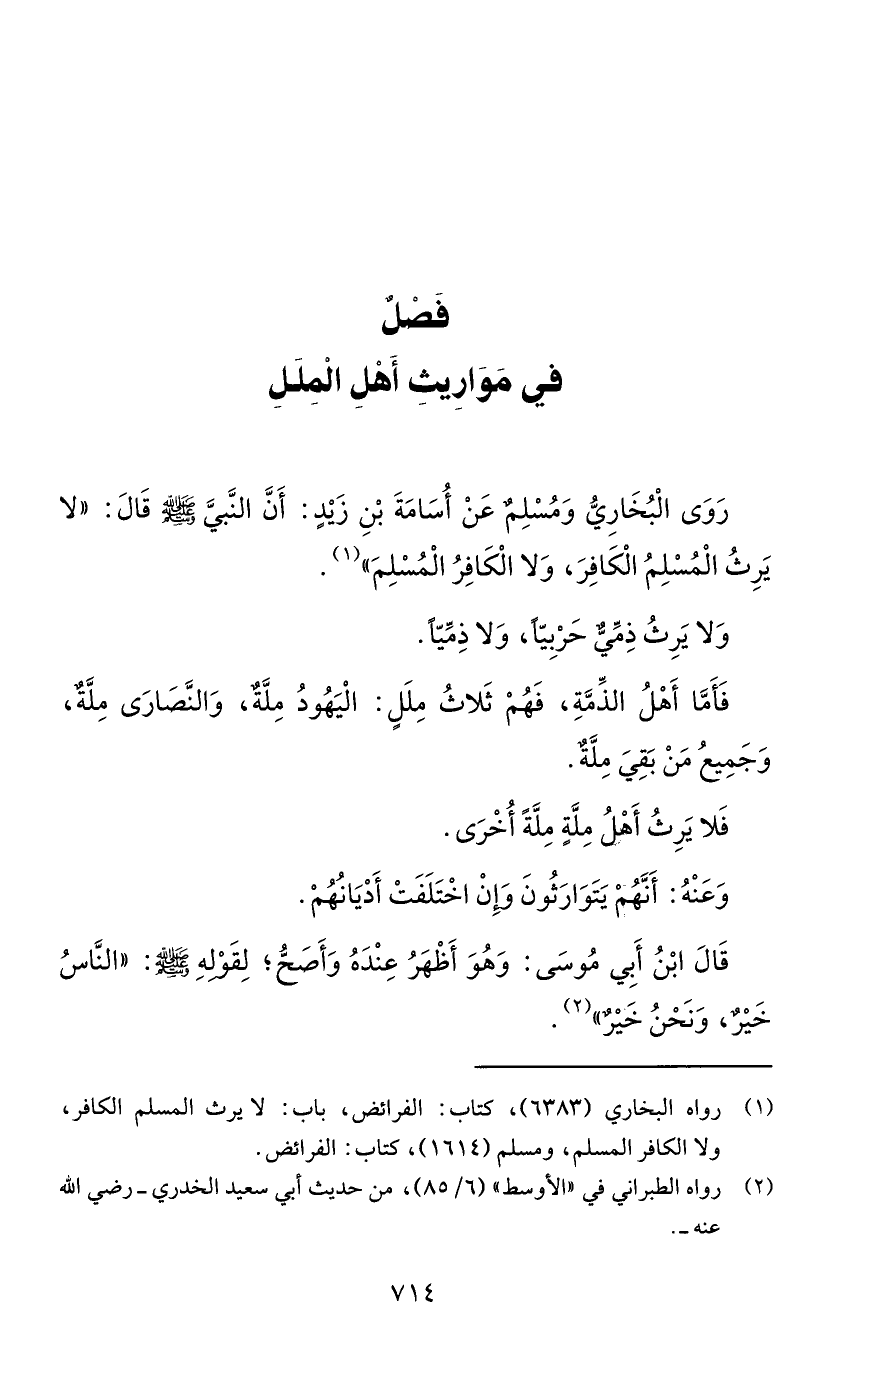 فَصْلٌ
في مَوَارِيثِ أَهْلِ الْمِلَلِ
رَوَى الْبُخَارِيُّ وَمُسْلِمٌ عَنْ أُسَامَةَ بْنِ زَيْدٍ: أَنَّ النَّبِيَّ ﷺ قَالَ: «لا
يَرِثُ الْمُسْلِمُ الْكَافِرَ، وَلا الْكَافِرُ الْمُسْلِمَ»(١).
وَلا يَرِثُ ذِمِّيٌّ حَرْبِيّاً، وَلا ذِمِّيّاً.
فَأَمَّا أَهْلُ الذِّمَّةِ، فَهُمْ ثَلاثُ مِلَلٍ: الْيَهُودُ مِلَّةٌ، وَالنَّصَارَى مِلَّةٌ،
وَجَمِيعُ مَنْ بَقِيَ مِلَّةٌ.
فَلا يَرِثُ أَهْلُ مِلَّةٍ مِلَّةً أُخْرَى.
وَعَنْهُ: أَنَّهُمْ يَتَوَارَثُونَ وَإِنْ اخْتَلَفَتْ أَدْيَانُهُمْ.
قَالَ ابْنُ أَبِي مُوسَى: وَهُوَ أَظْهَرُ عِنْدَهُ وَأَصَحُّ؛ لِقَوْلِهِ ﷺ: «النَّاسُ
خَيْرٌ، وَنَحْنُ خَيْرٌ»(٢).
(١) رواه البخاري (٦٣٨٣)، كتاب: الفرائض، باب: لا يرث المسلم الكافر،
ولا الكافر المسلم، ومسلم (١٦١٤)، كتاب: الفرائض.
(٢) رواه الطبراني في «الأوسط» (٦/ ٨٥)، من حديث أبي سعيد الخدري ـ رضي الله
عنه ـ.
٧١٤